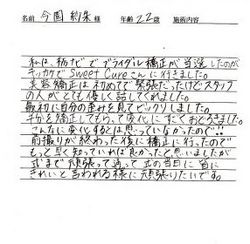 名前 今園 紗朱 様 年齢 22歳 施術内容
私は、ゼクシィでブライダル矯正が当選したのが
キッカケでSweet Cureさんに行きました。
美容矯正は初めてで緊張だったけどスタッフ
の人がとても優しく話してくれました。
最初に自分の歪みを見てビックリしました。
半分を矯正してもらって変化にすごくおどろきました。
こんなに変化するとは思っていなかったので!!
前撮りが終わった後に矯正に行ったので
もっと早く知っていれば良かったと思いましたが
式まで頑張って通って式の当日に皆に
きれいと言われる様に頑張りたいです。